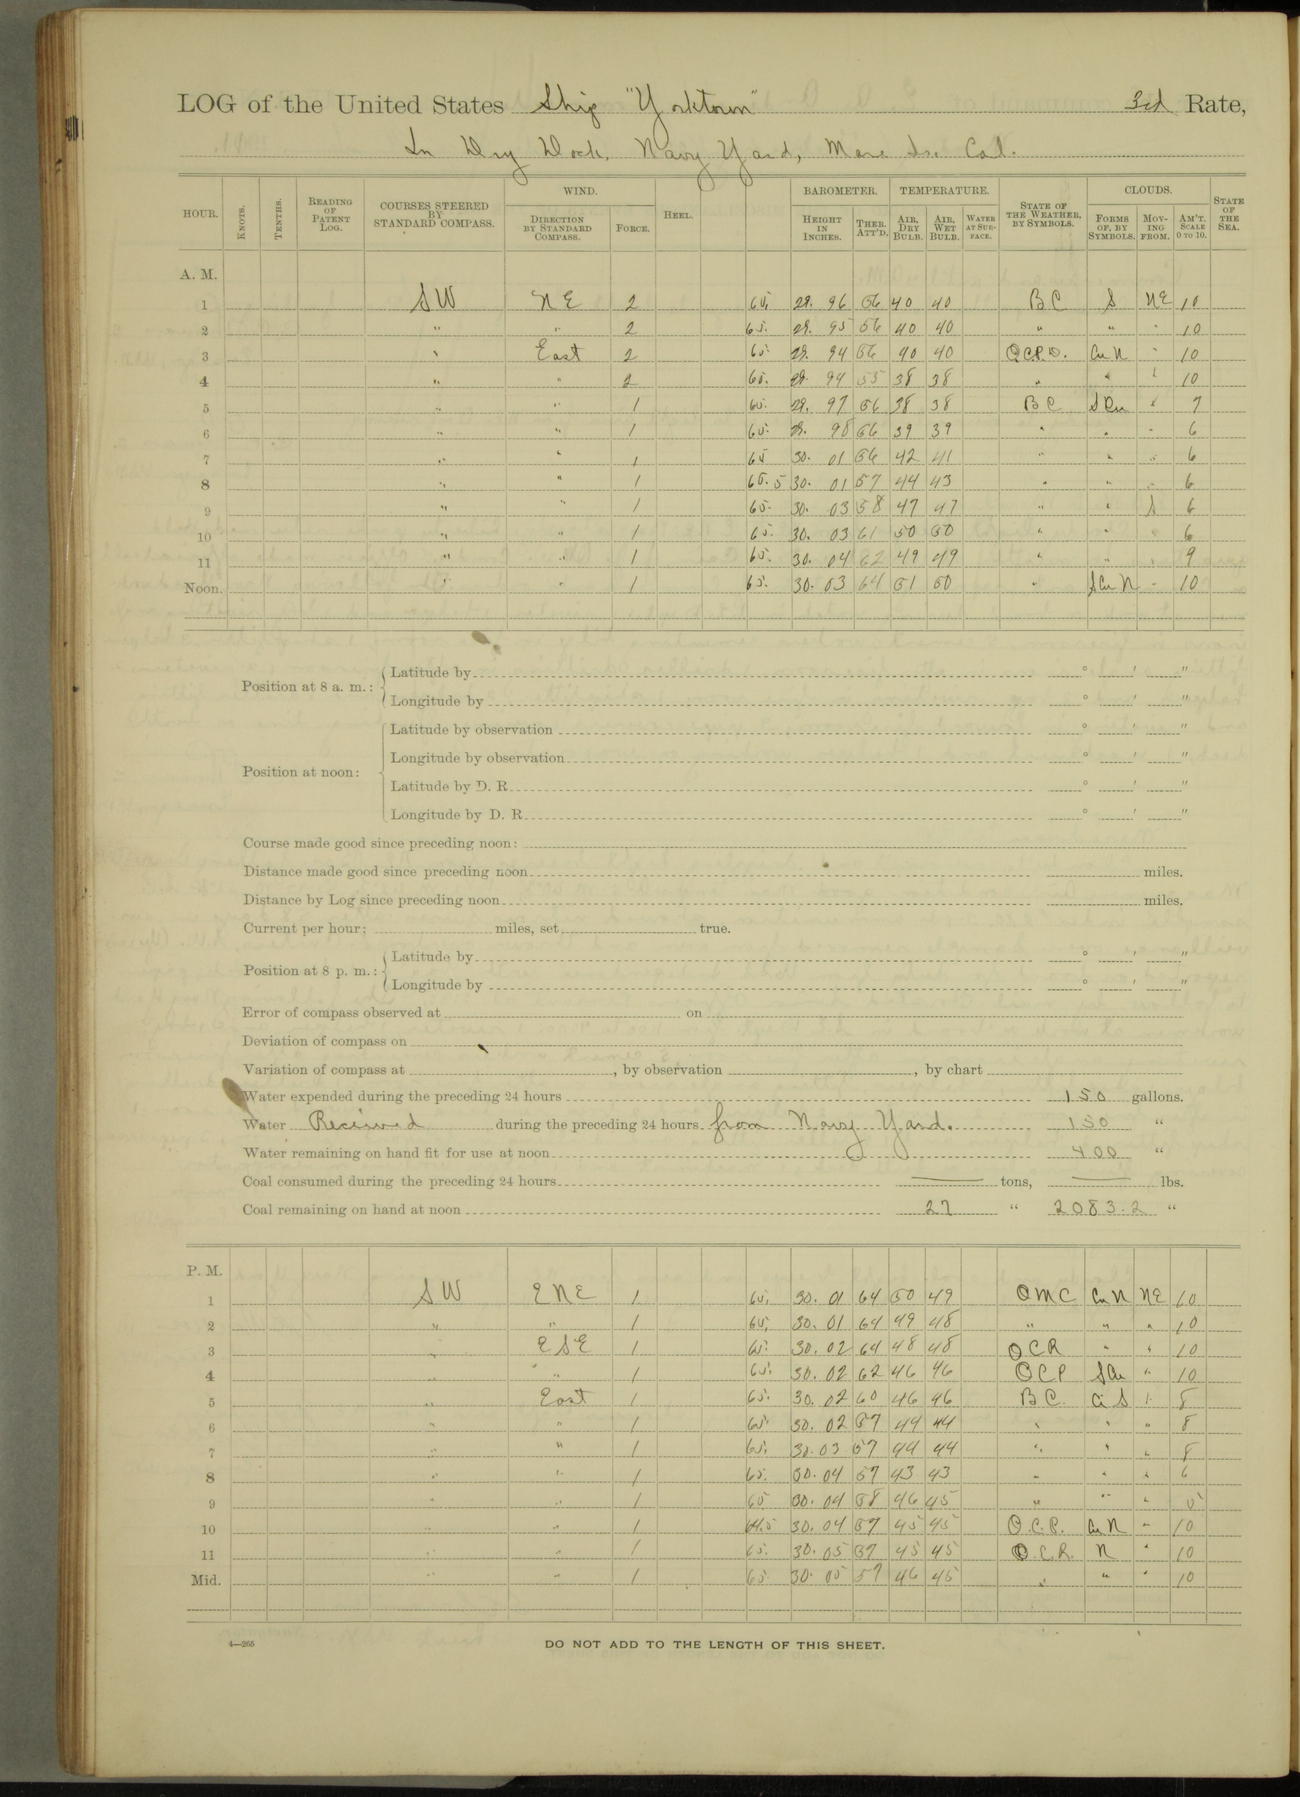 LOG of the United States Ship "Yorktown" 3rd Rate,
In Dry Dock, Navy Yard, Mare Is. Cal.
HOUR. KNOTS. TENTHS. READING OF PATENT LOG. COURSES STEERED BY STANDARD COMPASS. WIND. DIRECTION BY STANDARD COMPASS. FORCE. HEEL. BAROMETER. HEIGHT IN INCHES. THER. ATT'D. TEMPERATURE. AIR, DRY BULB. AIR, WET BULB. WATER AT SURFACE. STATE OF THE WEATHER, BY SYMBOLS. CLOUDS. FORMS OF, BY SYMBOLS. MOVING FROM. AM'T. SCALE 0 TO 10. STATE OF THE SEA.
A. M.
1 SW NE 2 65. 29. 96 56 40 40 BC S NE 10
2 " " 2 65. 29. 95 56 40 40 " " " 10
3 " East 2 65. 29. 94 56 40 40 OCPD. Cu N " 10
4 " " 2 65. 29. 94 55 38 38 " " " 10
5 " " 1 65. 29. 97 56 38 38 BC S Cu " 7
6 " " 1 65. 29. 98 56 39 39 " " " 6
7 " " 1 65 30. 01 56 42 41 " " " 6
8 " " 1 65.5 30. 01 57 44 43 " " " 6
9 " " 1 65. 30. 03 58 47 47 " " S 6
10 " " 1 65. 30. 03 61 50 50 " " " 6
11 " " 1 65. 30. 04 62 49 49 " " " 9
Noon. " " 1 65. 30. 03 64 51 50 " S Cu N " 10
Position at 8 a. m.: Latitude by ° ' "
Longitude by ° ' "
Position at noon: Latitude by observation ° ' "
Longitude by observation ° ' "
Latitude by D. R. ° ' "
Longitude by D. R. ° ' "
Course made good since preceding noon:
Distance made good since preceding noon miles.
Distance by Log since preceding noon miles.
Current per hour: miles, set true.
Position at 8 p. m.: Latitude by ° ' "
Longitude by ° ' "
Error of compass observed at on
Deviation of compass on
Variation of compass at , by observation , by chart
Water expended during the preceding 24 hours 150 gallons.
Water Received during the preceding 24 hours from Navy Yard. 150 "
Water remaining on hand fit for use at noon 400 "
Coal consumed during the preceding 24 hours — tons, — lbs.
Coal remaining on hand at noon 27 " 2083.2 "
P. M.
1 SW ENE 1 65. 30. 01 64 50 49 OMC Cu N NE 10
2 " " 1 65. 30. 01 64 49 48 " " " 10
3 " ESE 1 65. 30. 02 64 48 48 OCR " " 10
4 " " 1 65. 30. 02 62 46 46 OCP S Cu " 10
5 " East 1 65. 30. 02 60 46 46 BC. Ci S " 8
6 " " 1 65. 30. 02 57 44 44 " " " 8
7 " " 1 65. 30. 03 57 44 44 " " " 8
8 " " 1 65. 30. 04 57 43 43 " " " 6
9 " " 1 65 30. 04 58 46 45 " " " 5
10 " " 1 64.5 30. 04 57 45 45 O.C.P. Cu N " 10
11 " " 1 65. 30. 05 57 45 45 O.C.R. N " 10
Mid. " " 1 65. 30. 05 57 46 45 " " " 10
4—265 DO NOT ADD TO THE LENGTH OF THIS SHEET.